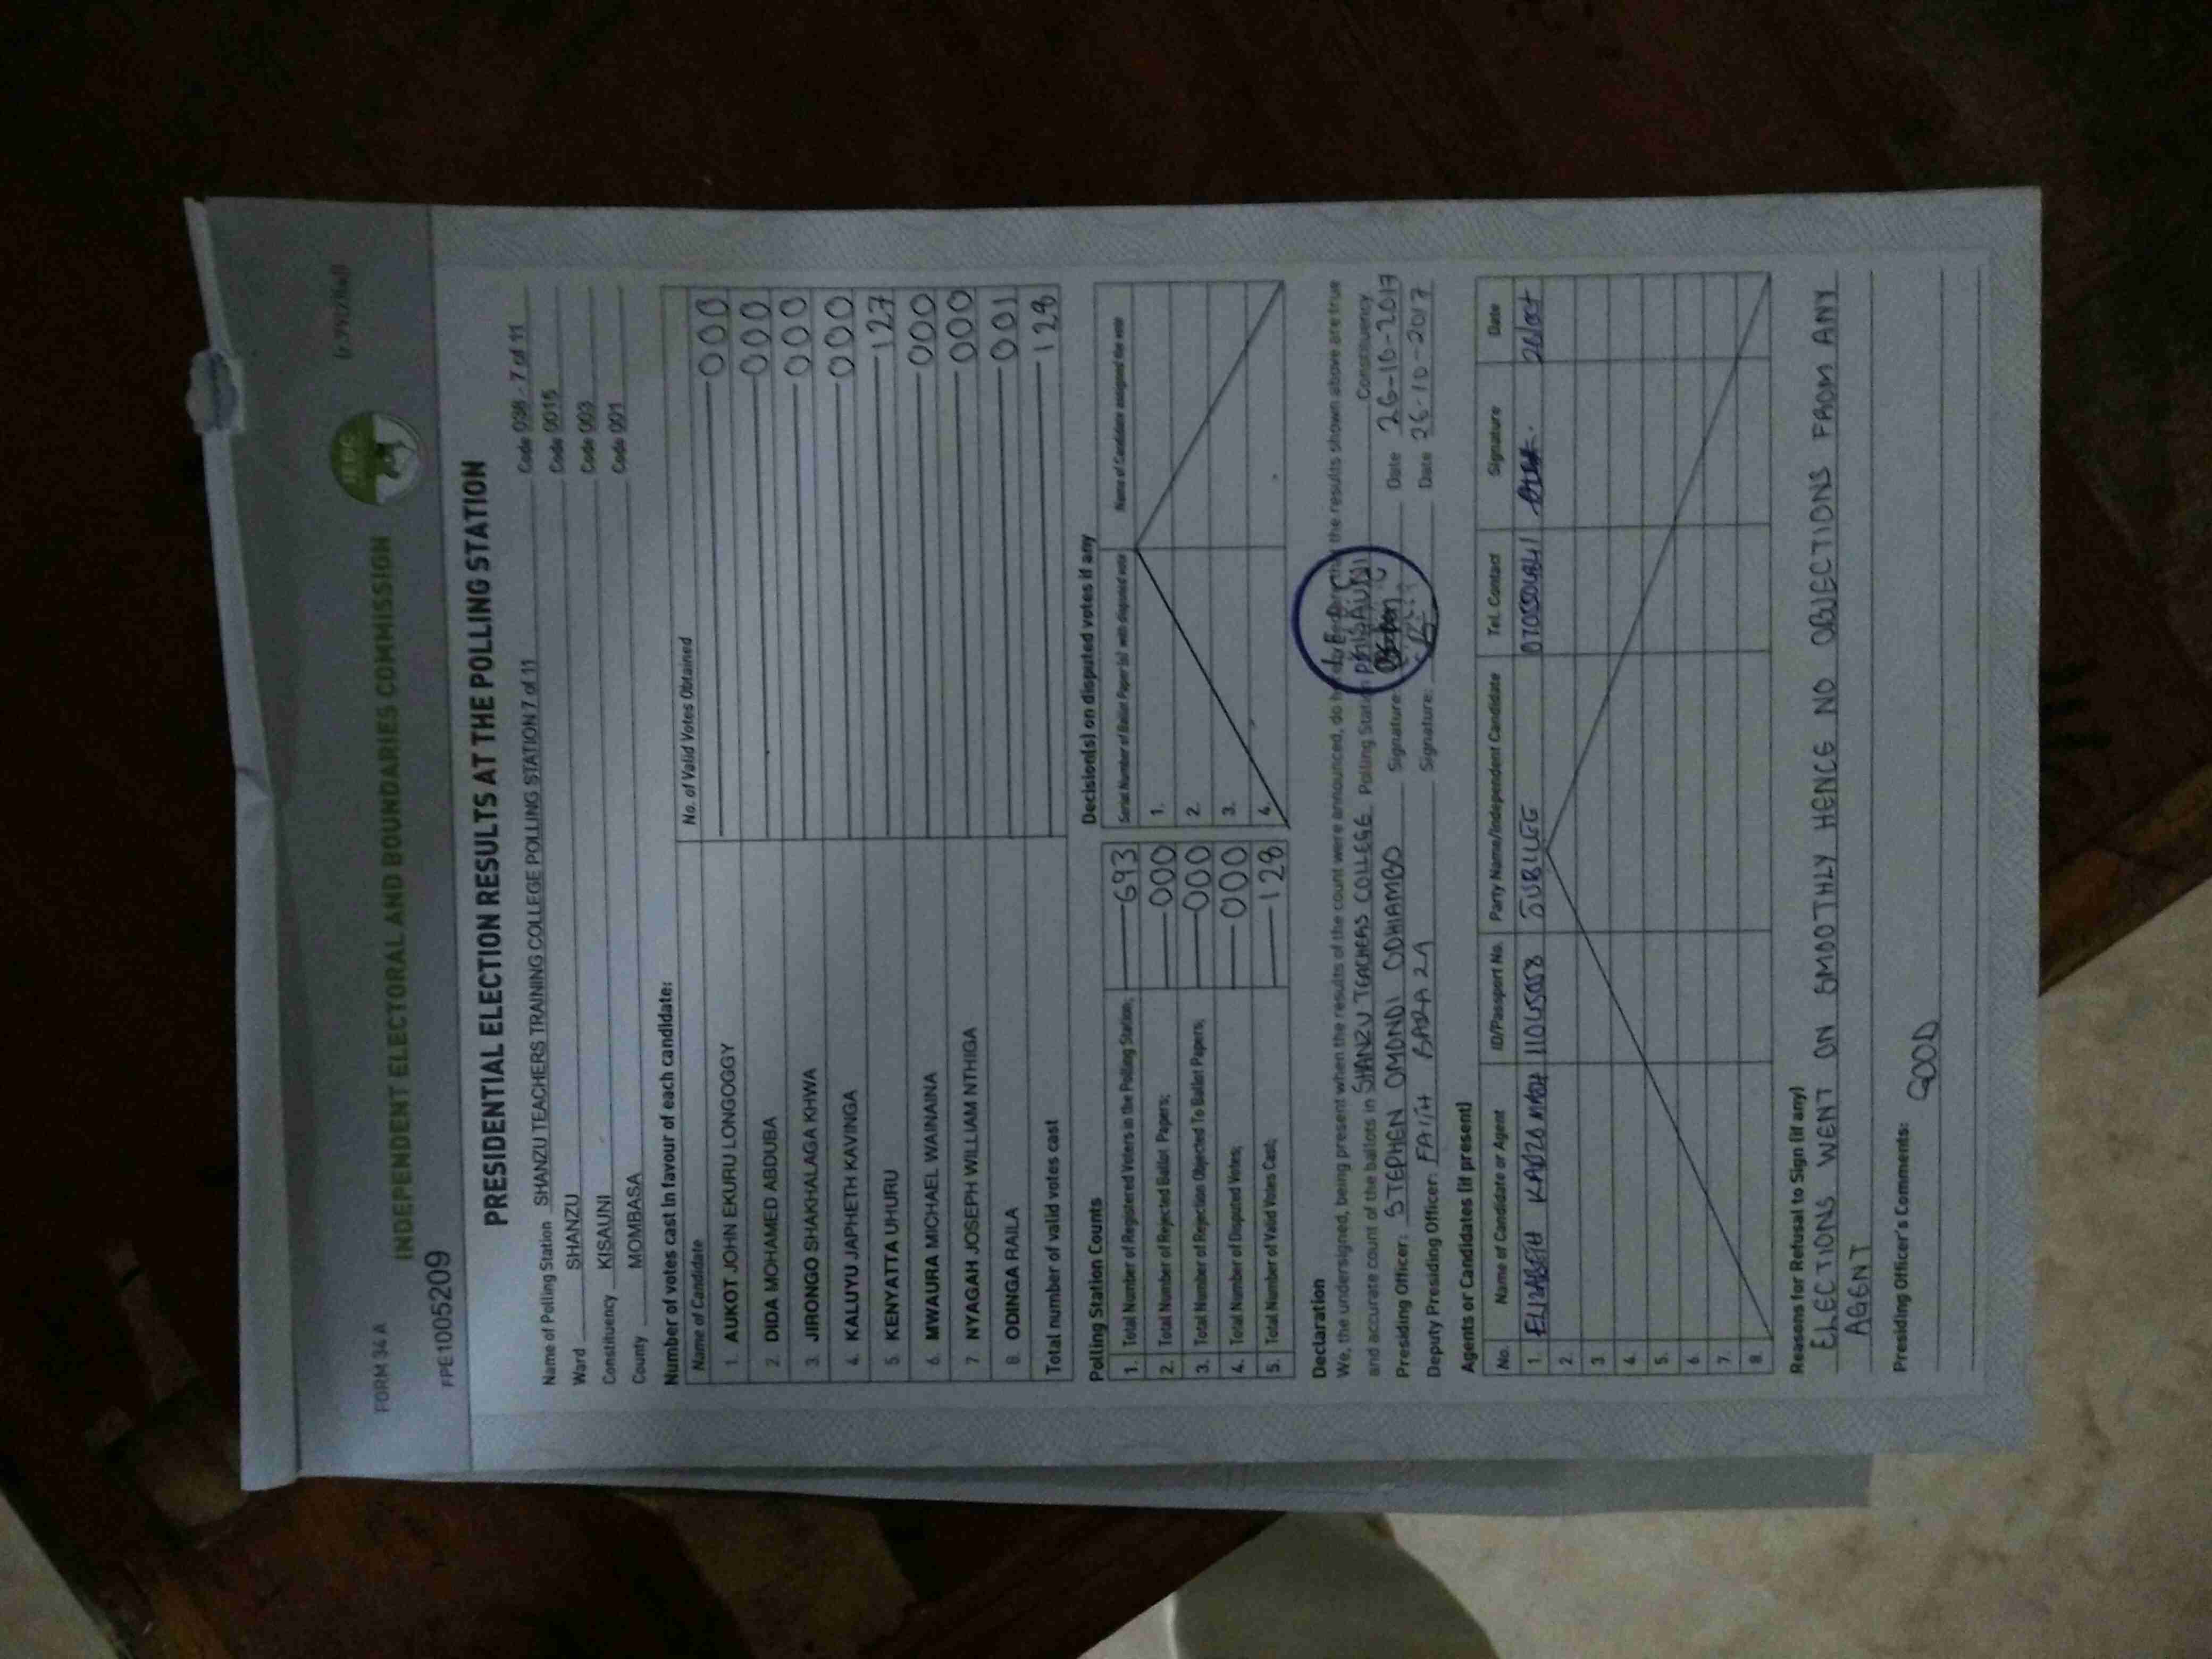 FORM 34 A
INDEPENDENT ELECTORAL AND BOUNDARIES COMMISSION
IEBC
FPE1005209
PRESIDENTIAL ELECTION RESULTS AT THE POLLING STATION
Name of Polling Station SHANZU TEACHERS TRAINING COLLEGE POLLING STATION 7 of 11 Code 038 - 7 of 11
Ward SHANZU Code 0015
Constituency KISAUNI Code 003
County MOMBASA Code 001
Number of votes cast in favour of each candidate:
Name of Candidate No. of Valid Votes Obtained
1. AUKOT JOHN EKURU LONGOGGY 000
2. DIDA MOHAMED ABDUBA 000
3. JIRONGO SHAKHALAGA KHWA 000
4. KALUYU JAPHETH KAVINGA 000
5. KENYATTA UHURU 127
6. MWAURA MICHAEL WAINAINA 000
7 NYAGAH JOSEPH WILLIAM NTHIGA 000
8. ODINGA RAILA 001
Total number of valid votes cast 128
Polling Station Counts
1. Total Number of Registered Voters in the Polling Station; 693
2. Total Number of Rejected Ballot Papers; 000
3. Total Number of Rejection Objected To Ballot Papers; 000
4. Total Number of Disputed Votes; 000
5. Total Number of Valid Votes Cast; 128
Decision(s) on disputed votes if any
Serial Number of Ballot Paper (s) with disputed vote Name of Candidate assigned the vote
1.
2.
3.
4.
Declaration
We, the undersigned, being present when the results of the count were announced, do the results shown above are true
and accurate count of the ballots in SHANZU TEACHERS COLLEGE Polling Station KISAUNI Constituency
Presiding Officer: STEPHEN OMONDI ODHIAMBO Signature: Date 26-10-2017
Deputy Presiding Officer: FAITH BARAZA Signature: Date 26-10-2017
Agents or Candidates (if present)
No. Name of Candidate or Agent ID/Passport No. Party Name/Independent Candidate Tel. Contact Signature Date
1. ELIZABETH KADZO JUBILEE 26/oct
2.
3
4.
5.
6.
7.
8.
Reasons for Refusal to Sign (if any)
ELECTIONS WENT ON SMOOTHLY HENCE NO OBJECTIONS FROM ANY
AGENT
Presiding Officer's Comments:
GOOD